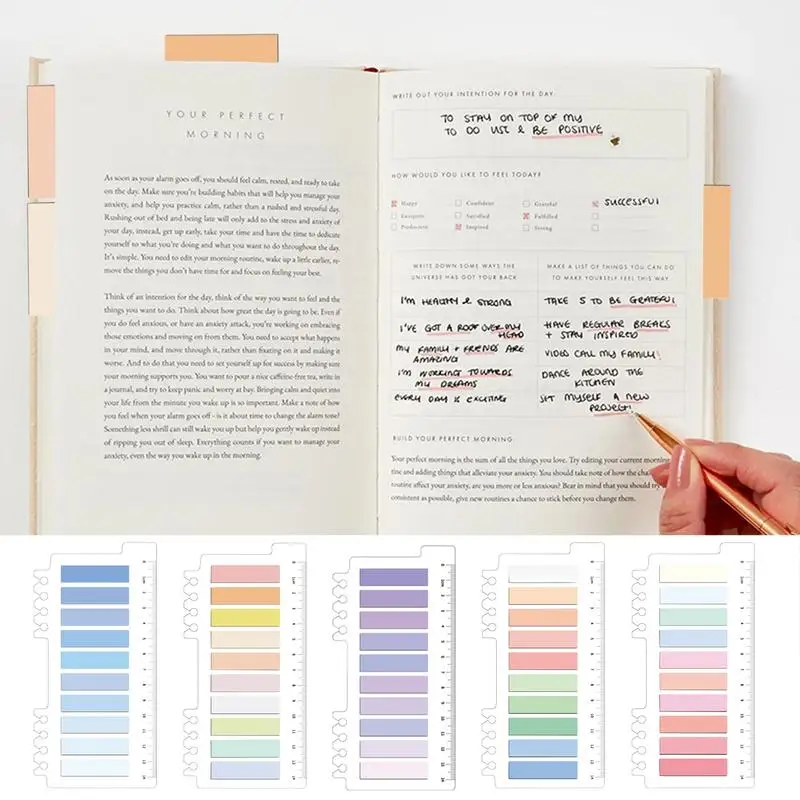 YOUR PERFECT
MORNING
As soon as your alarm goes off, you should feel calm, rested, and ready to take
on the day. Make sure you're building habits that will help you manage your
anxiety, and help you practice calm, rather than a rushed and stressful day.
Rushing out of bed and being late will only add to the stress and anxiety of
your day, instead, get up early, take your time and have the time to dedicate
yourself to what you're doing and what you want to do throughout the day.
It's simple. You need to edit your morning routine, wake up a little earlier, re-
move the things you don't have time for and focus on feeling your best.
Think of an intention for the day, think of the way you want to feel and the
things you want to do. Think about how great the day is going to be. Even if
you do feel anxious, or have an anxiety attack, you're working on embracing
those emotions and moving on from them. You need to accept what happens
in your mind, and move through it, rather than fixating on it and making it
worse. And to do that you need to set yourself up for success by making sure
your morning supports you. You want to pour a nice caffeine-free tea, write in
a journal, and try to keep panic and worry at bay. Bringing calm and quiet into
your life from the minute you wake up is so important. Make a note of how
you feel when your alarm goes off - is it about time to change the alarm tone?
Something less shrill can still wake you up but help you gently wake up instead
of ripping you out of sleep. Everything counts if you want to manage your
anxiety, even the way you wake up in the morning.
WRITE OUT YOUR INTENTION FOR THE DAY:
TO STAY ON TOP OF MY
TO DO LIST & BE POSITIVE
HOW WOULD YOU LIKE TO FEEL TODAY?
Happy Confident Grateful SUCCESSFUL
Energetic Satisfied Fulfilled
Productive Inspired Strong
WRITE DOWN SOME WAYS THE
UNIVERSE HAS GOT YOUR BACK
I'M HEALTHY & STRONG
I'VE GOT A ROOF OVER MY
HEAD
MY FAMILY + FRIENDS ARE
AMAZING
I'M WORKING TOWARDS
MY DREAMS
EVERY DAY IS EXCITING
MAKE A LIST OF THINGS YOU CAN DO
TO MAKE YOURSELF FEEL THIS WAY
TAKE 5 TO BE GRATEFUL
HAVE REGULAR BREAKS
+ STAY INSPIRED
VIDEO CALL MY FAMILY!
DANCE AROUND THE
KITCHEN
SET MYSELF A NEW
PROJECT!
BUILD YOUR PERFECT MORNING:
Your perfect morning is the sum of all the things you love. Try editing your current morning
tine and adding things that alleviate your anxiety. You should take note of how the
routine affect your anxiety, are you more or less anxious? Bear in mind that you should try
consistent as possible, give new routines a chance to stick before you change them.